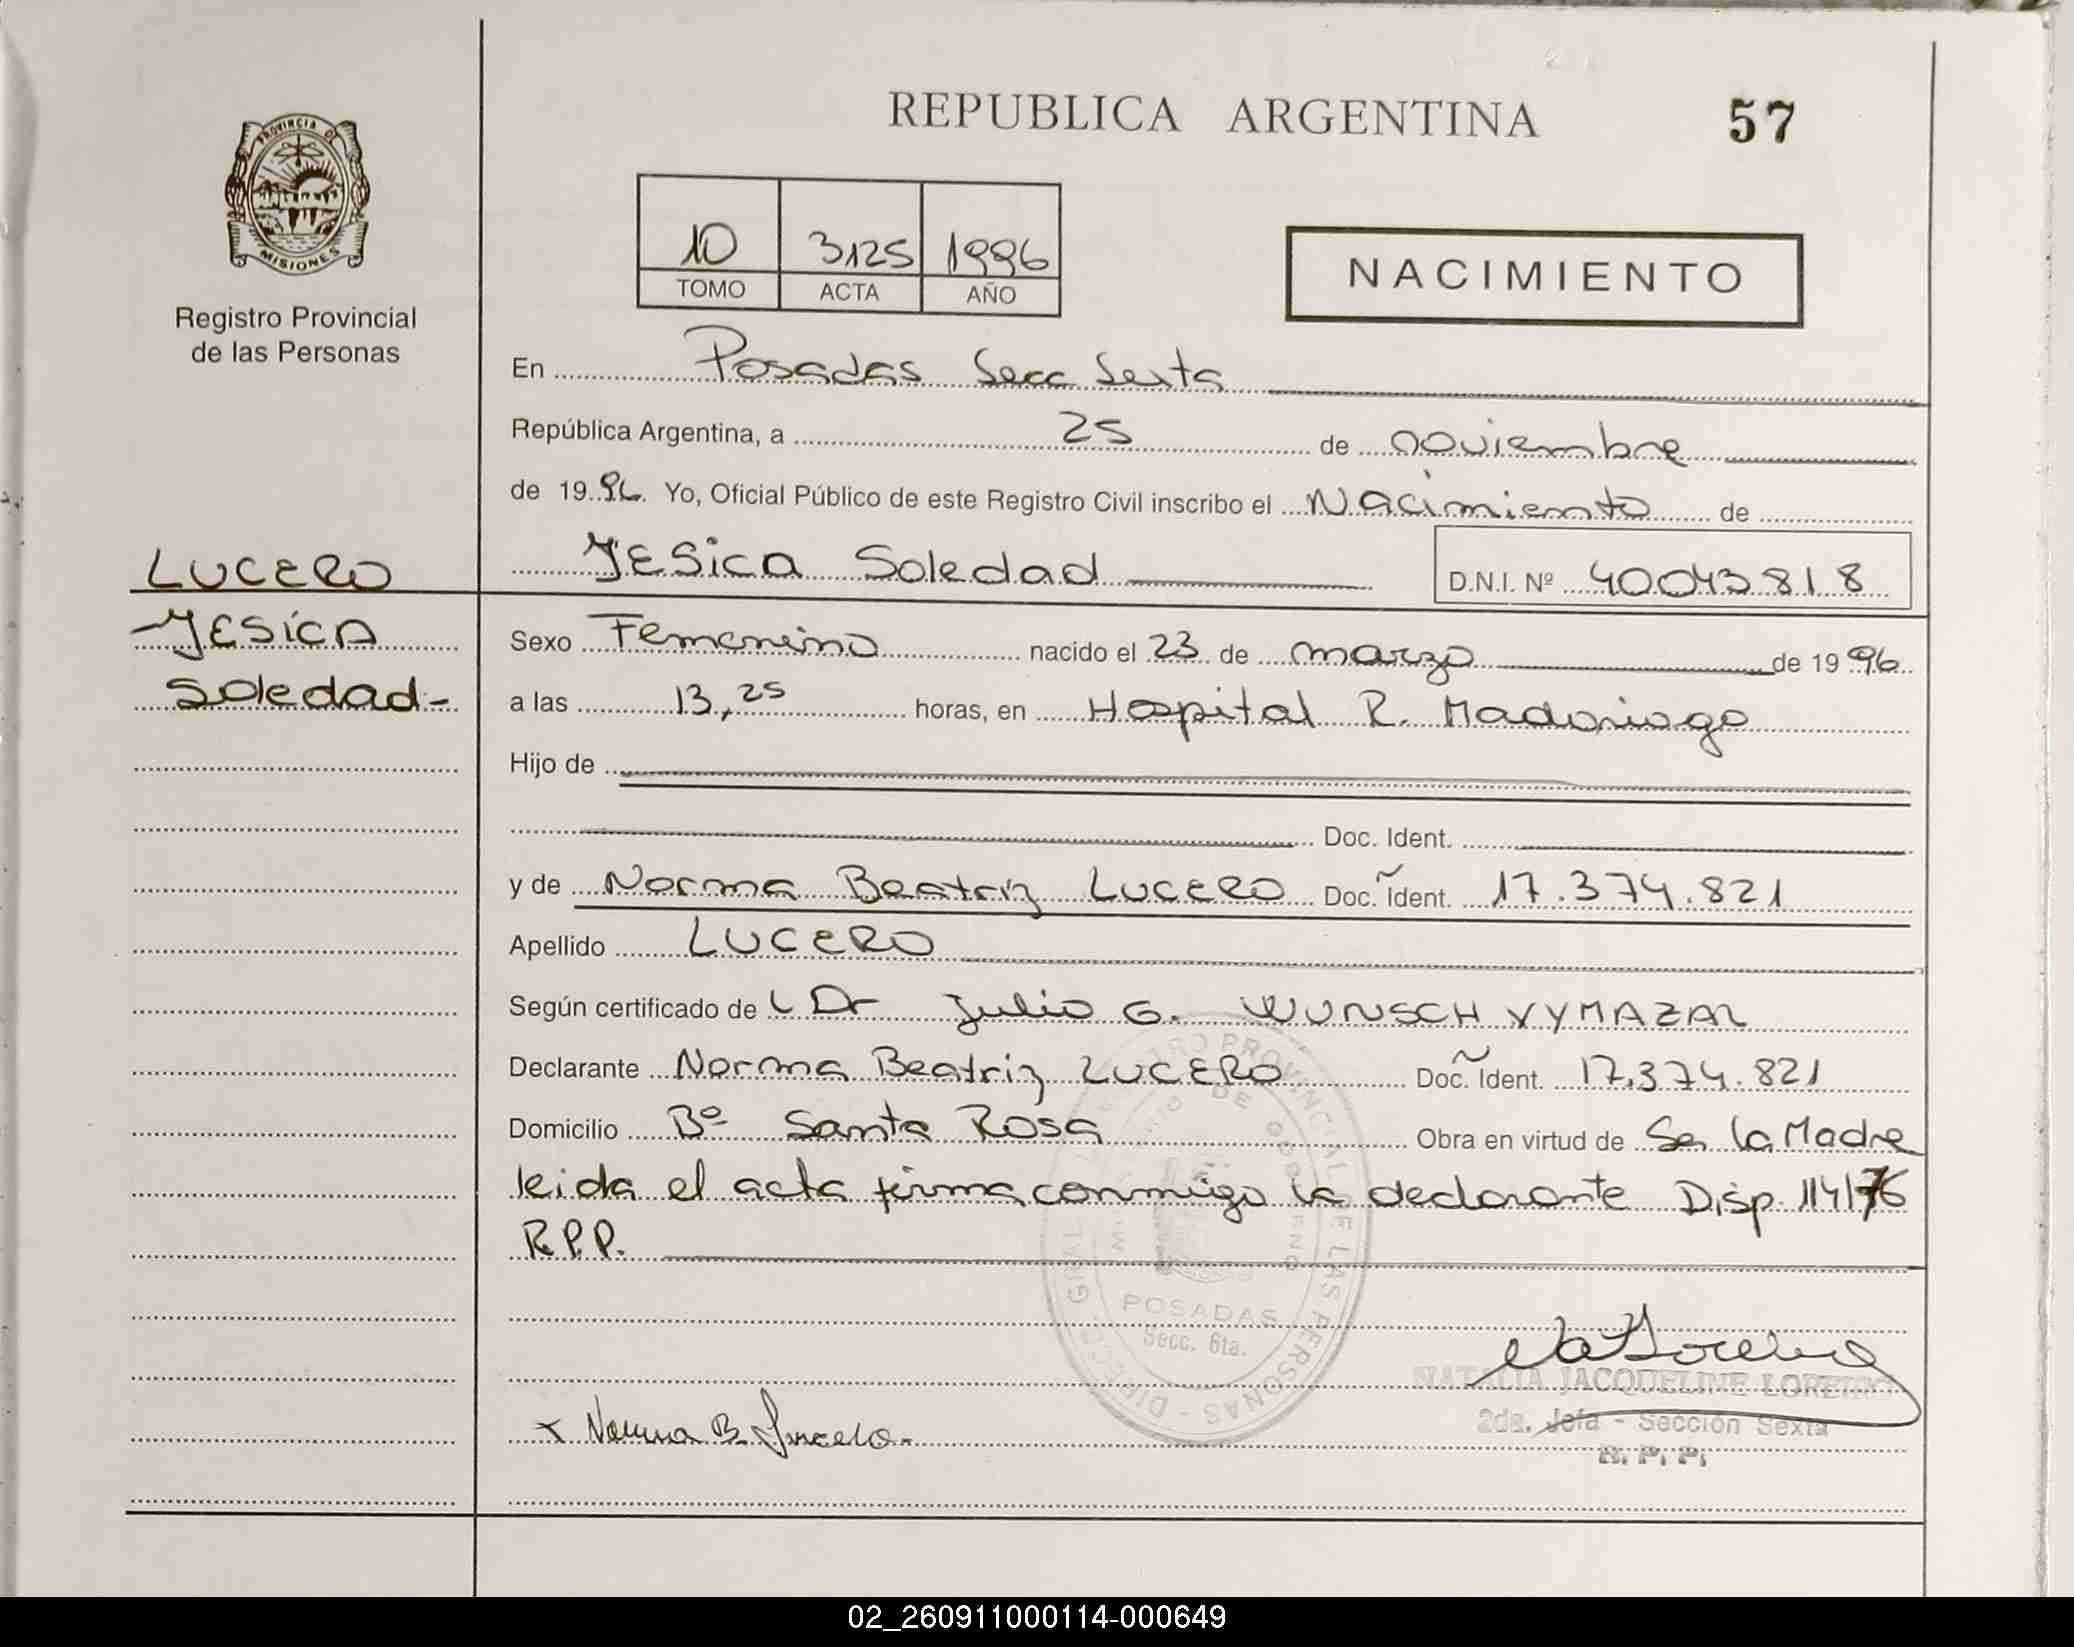 REPUBLICA ARGENTINA 57
PROVINCIA DE
MISIONES
Registro Provincial
de las Personas
10 3125 1996
TOMO ACTA AÑO
NACIMIENTO
En Posadas Secc Sexta
República Argentina, a 25 de noviembre
de 1996. Yo, Oficial Público de este Registro Civil inscribo el Nacimiento de
YESICA Soledad D.N.I. Nº 40043818
LUCERO
YESICA
Soledad-
Sexo Femenino nacido el 23 de marzo de 1996
a las 13,25 horas, en Hospital R. Madariaga
Hijo de
Doc. Ident.
y de Norma Beatriz LUCERO Doc. Ident. 17.374.821
Apellido LUCERO
Según certificado de L Dr Julio G. WUNSCH VYMAZAL
Declarante Norma Beatriz LUCERO Doc. Ident. 17.374.821
Domicilio Bº Santa Rosa Obra en virtud de Ser la Madre
leida el acta firma conmigo la declarante Disp. 114/76
R.P.P.
DIRECC. GRAL. REGISTRO PROVINCIAL DE LAS PERSONAS
MINISTERIO DE GOBIERNO
POSADAS
Secc. 6ta.
NATALIA JACQUELINE LOREIRO
2da. Jefa - Sección Sexta
R. P. P.
x Norma B. Lucero.
02_260911000114-000649